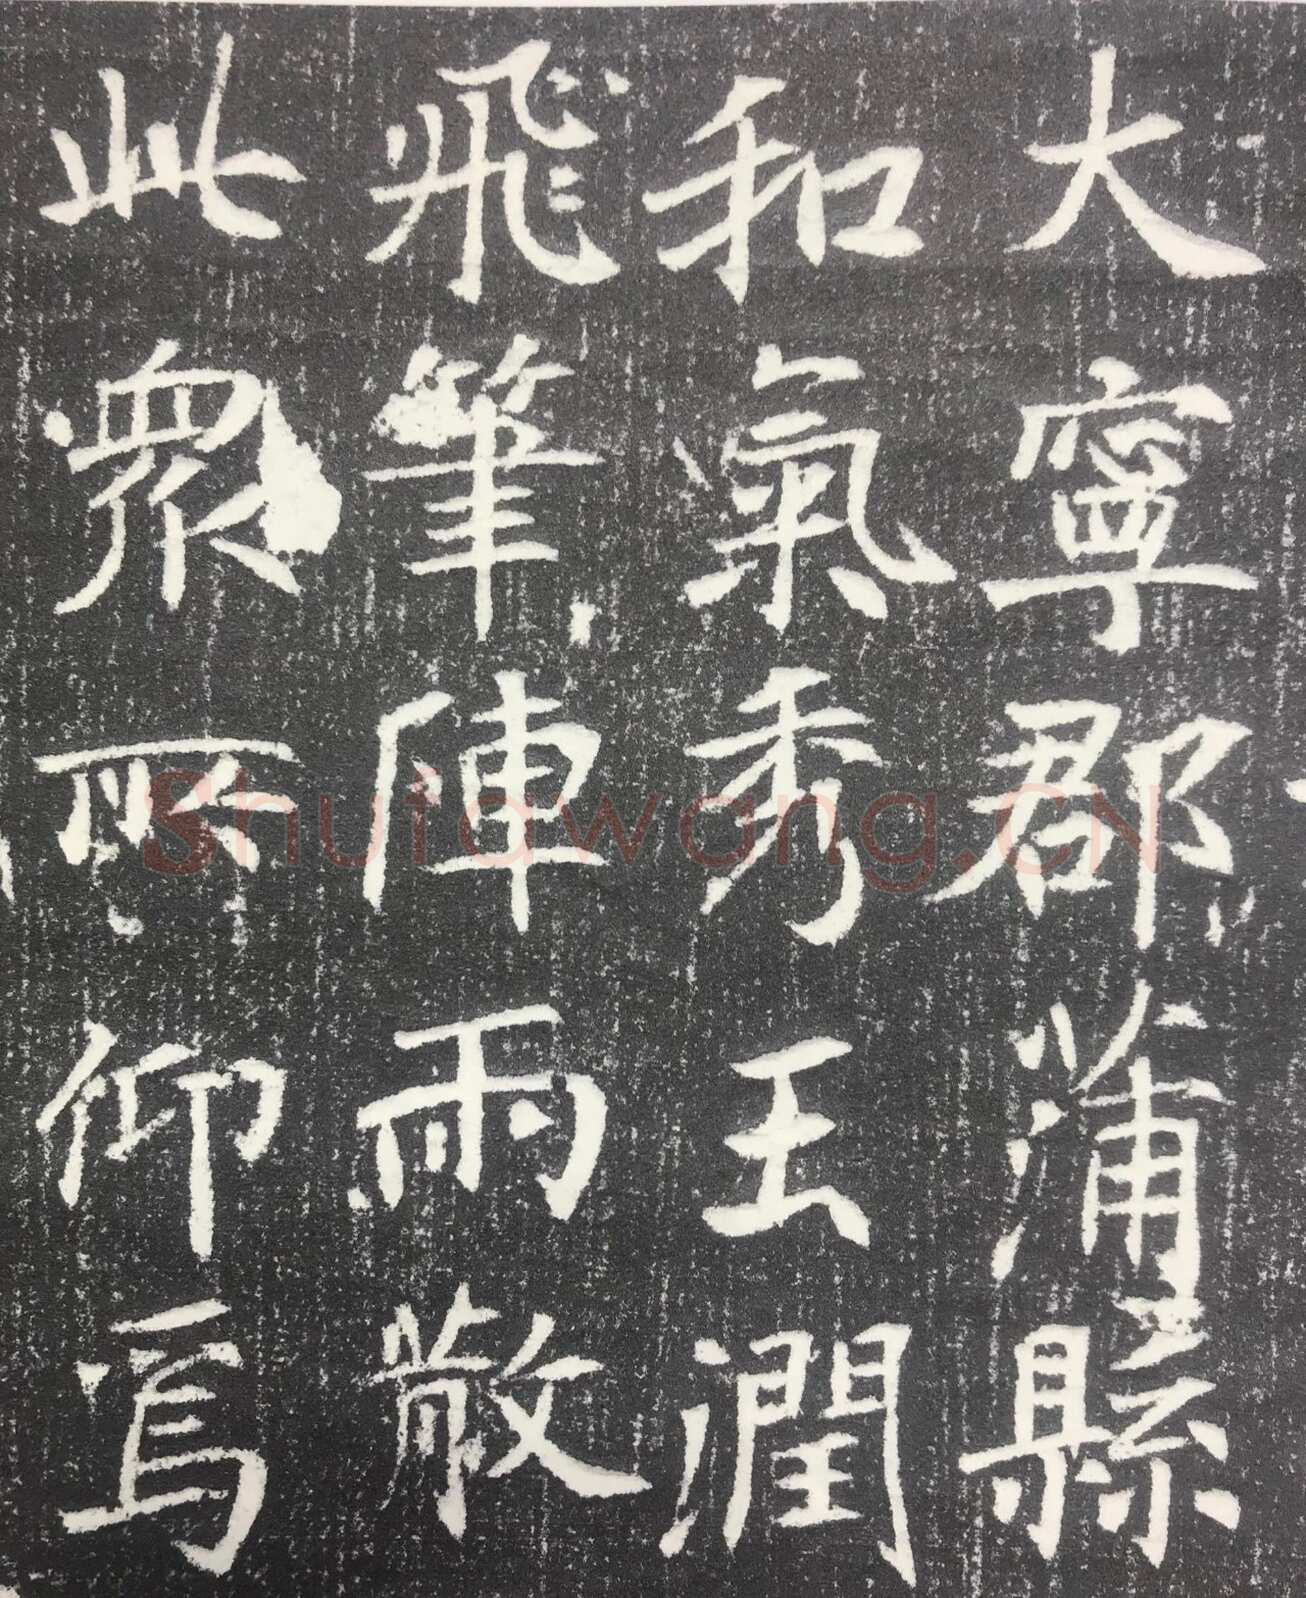 大寧郡蒲縣
和氣秀玉潤
飛筆陣雨散
此衆所仰焉
Shufawang.CN